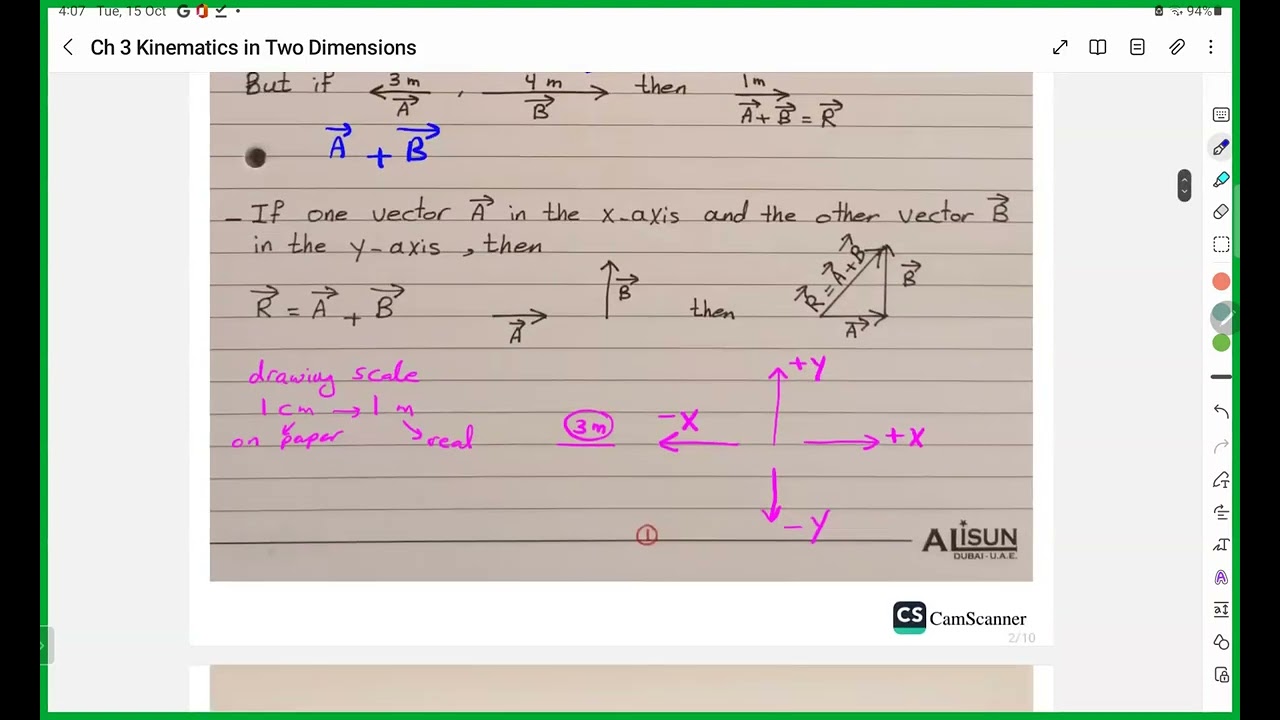 4:07 Tue, 15 Oct G • 94%
Ch 3 Kinematics in Two Dimensions
But if 3 m A , 4 m B then 1 m A + B = R
A + B
- If one vector A in the x-axis and the other vector B
in the y-axis , then
R = A + B A B then R = A + B A B
drawing scale
1 cm → 1 m
on paper real
3 m
+y
-x
+x
-y
1
ALISUN
DUBAI - U.A.E.
CS CamScanner
2/10